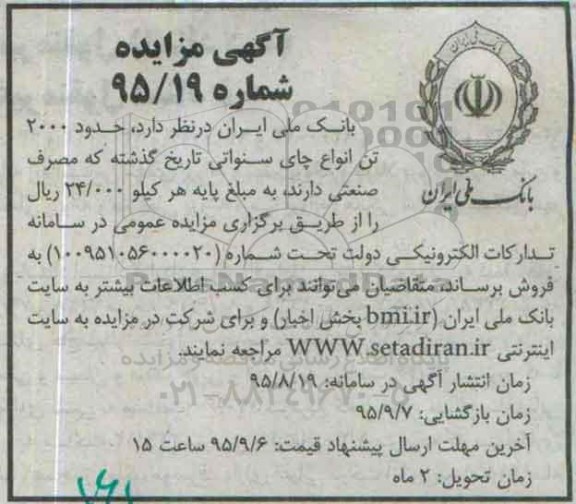 آگهی مزایده
شماره ۹۵/۱۹
بانک ملی ایران
بانک ملی ایران درنظر دارد، حدود ۲۰۰۰
تن انواع چای سنواتی تاریخ گذشته که مصرف
صنعتی دارند، به مبلغ پایه هر کیلو ۲۴/۰۰۰ ریال
را از طریق برگزاری مزایده عمومی در سامانه
تدارکات الکترونیکی دولت تحت شماره (۱۰۰۹۵۱۰۵۶۰۰۰۰۲۰) به
فروش برساند، متقاضیان می‌توانند برای کسب اطلاعات بیشتر به سایت
بانک ملی ایران (bmi.ir بخش اخبار) و برای شرکت در مزایده به سایت
اینترنتی WWW.setadiran.ir مراجعه نمایند.
زمان انتشار آگهی در سامانه: ۹۵/۸/۱۹
زمان بازگشایی: ۹۵/۹/۷
آخرین مهلت ارسال پیشنهاد قیمت: ۹۵/۹/۶ ساعت ۱۵
زمان تحویل: ۲ ماه